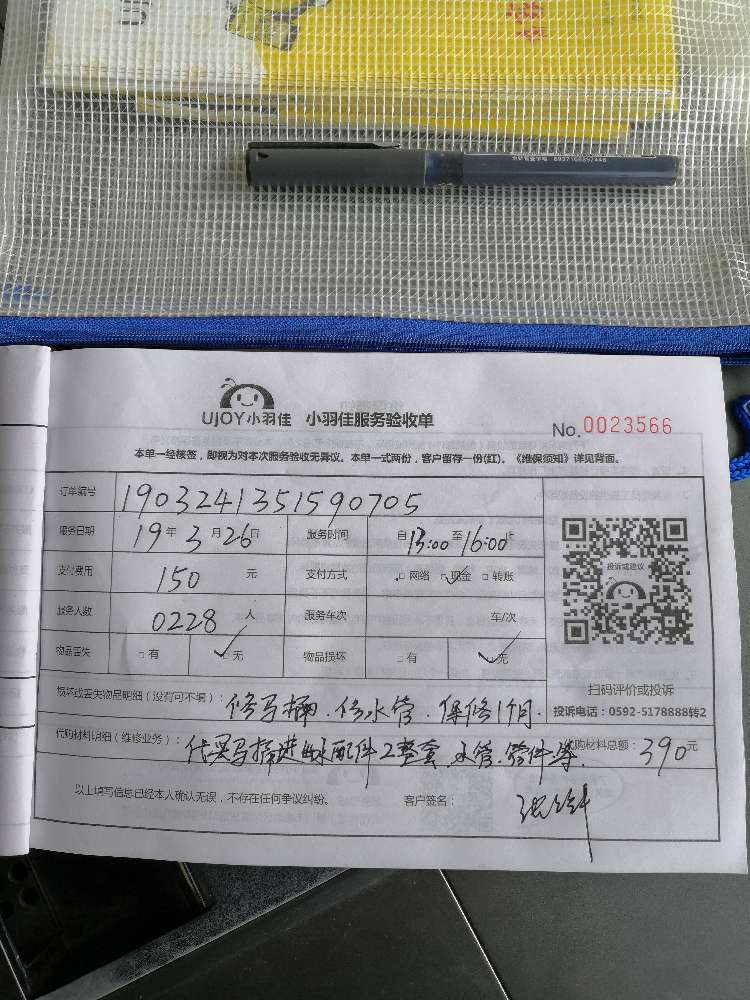 UJOY小羽佳 小羽佳服务验收单
No. 0023566
本单一经核签，即视为对本次服务验收无异议。本单一式两份，客户留存一份(红)。《维保须知》详见背面。
订单编号 1903241351590705
服务日期 19年3月26日 服务时间 自13:00至16:00止
支付费用 150元 支付方式 □网络 ☑现金 □转账
服务人数 0228人 服务车次 车/次
物品丢失 □有 ☑无 物品损坏 □有 ☑无
投诉或建议
扫码评价或投诉
投诉电话：0592-5178888转2
损坏或丢失物品明细（没有可不填）：修马桶、修水管、保修1个月.
代购材料明细（维修业务）：代买马桶进水配件2整套、水管、管件等. 代购材料总额：390元
以上填写信息已经本人确认无误，不存在任何争议纠纷。 客户签名：